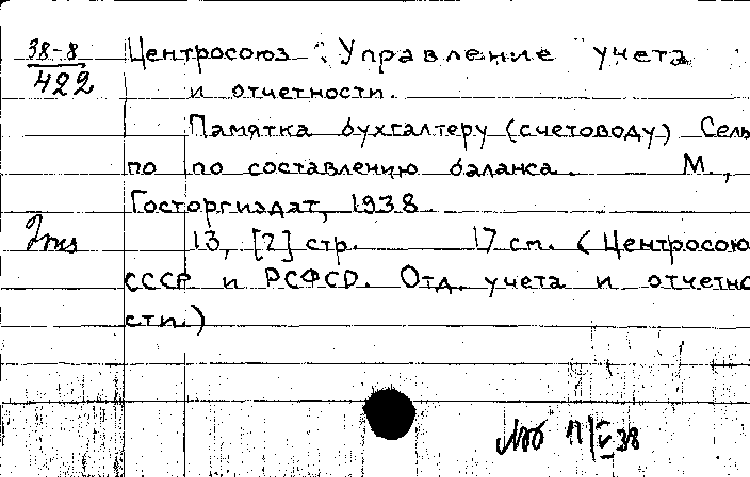 38-8
422
Центросоюз. Управление учета
и отчетности.
Памятка бухгалтеру (счетоводу) Сель
по по составлению баланса. М.,
Госторгиздат, 1938.
2 экз
13, [2] стр. 17 см. (Центросою
СССР и РСФСР. Отд. учета и отчетно
сти.)
38